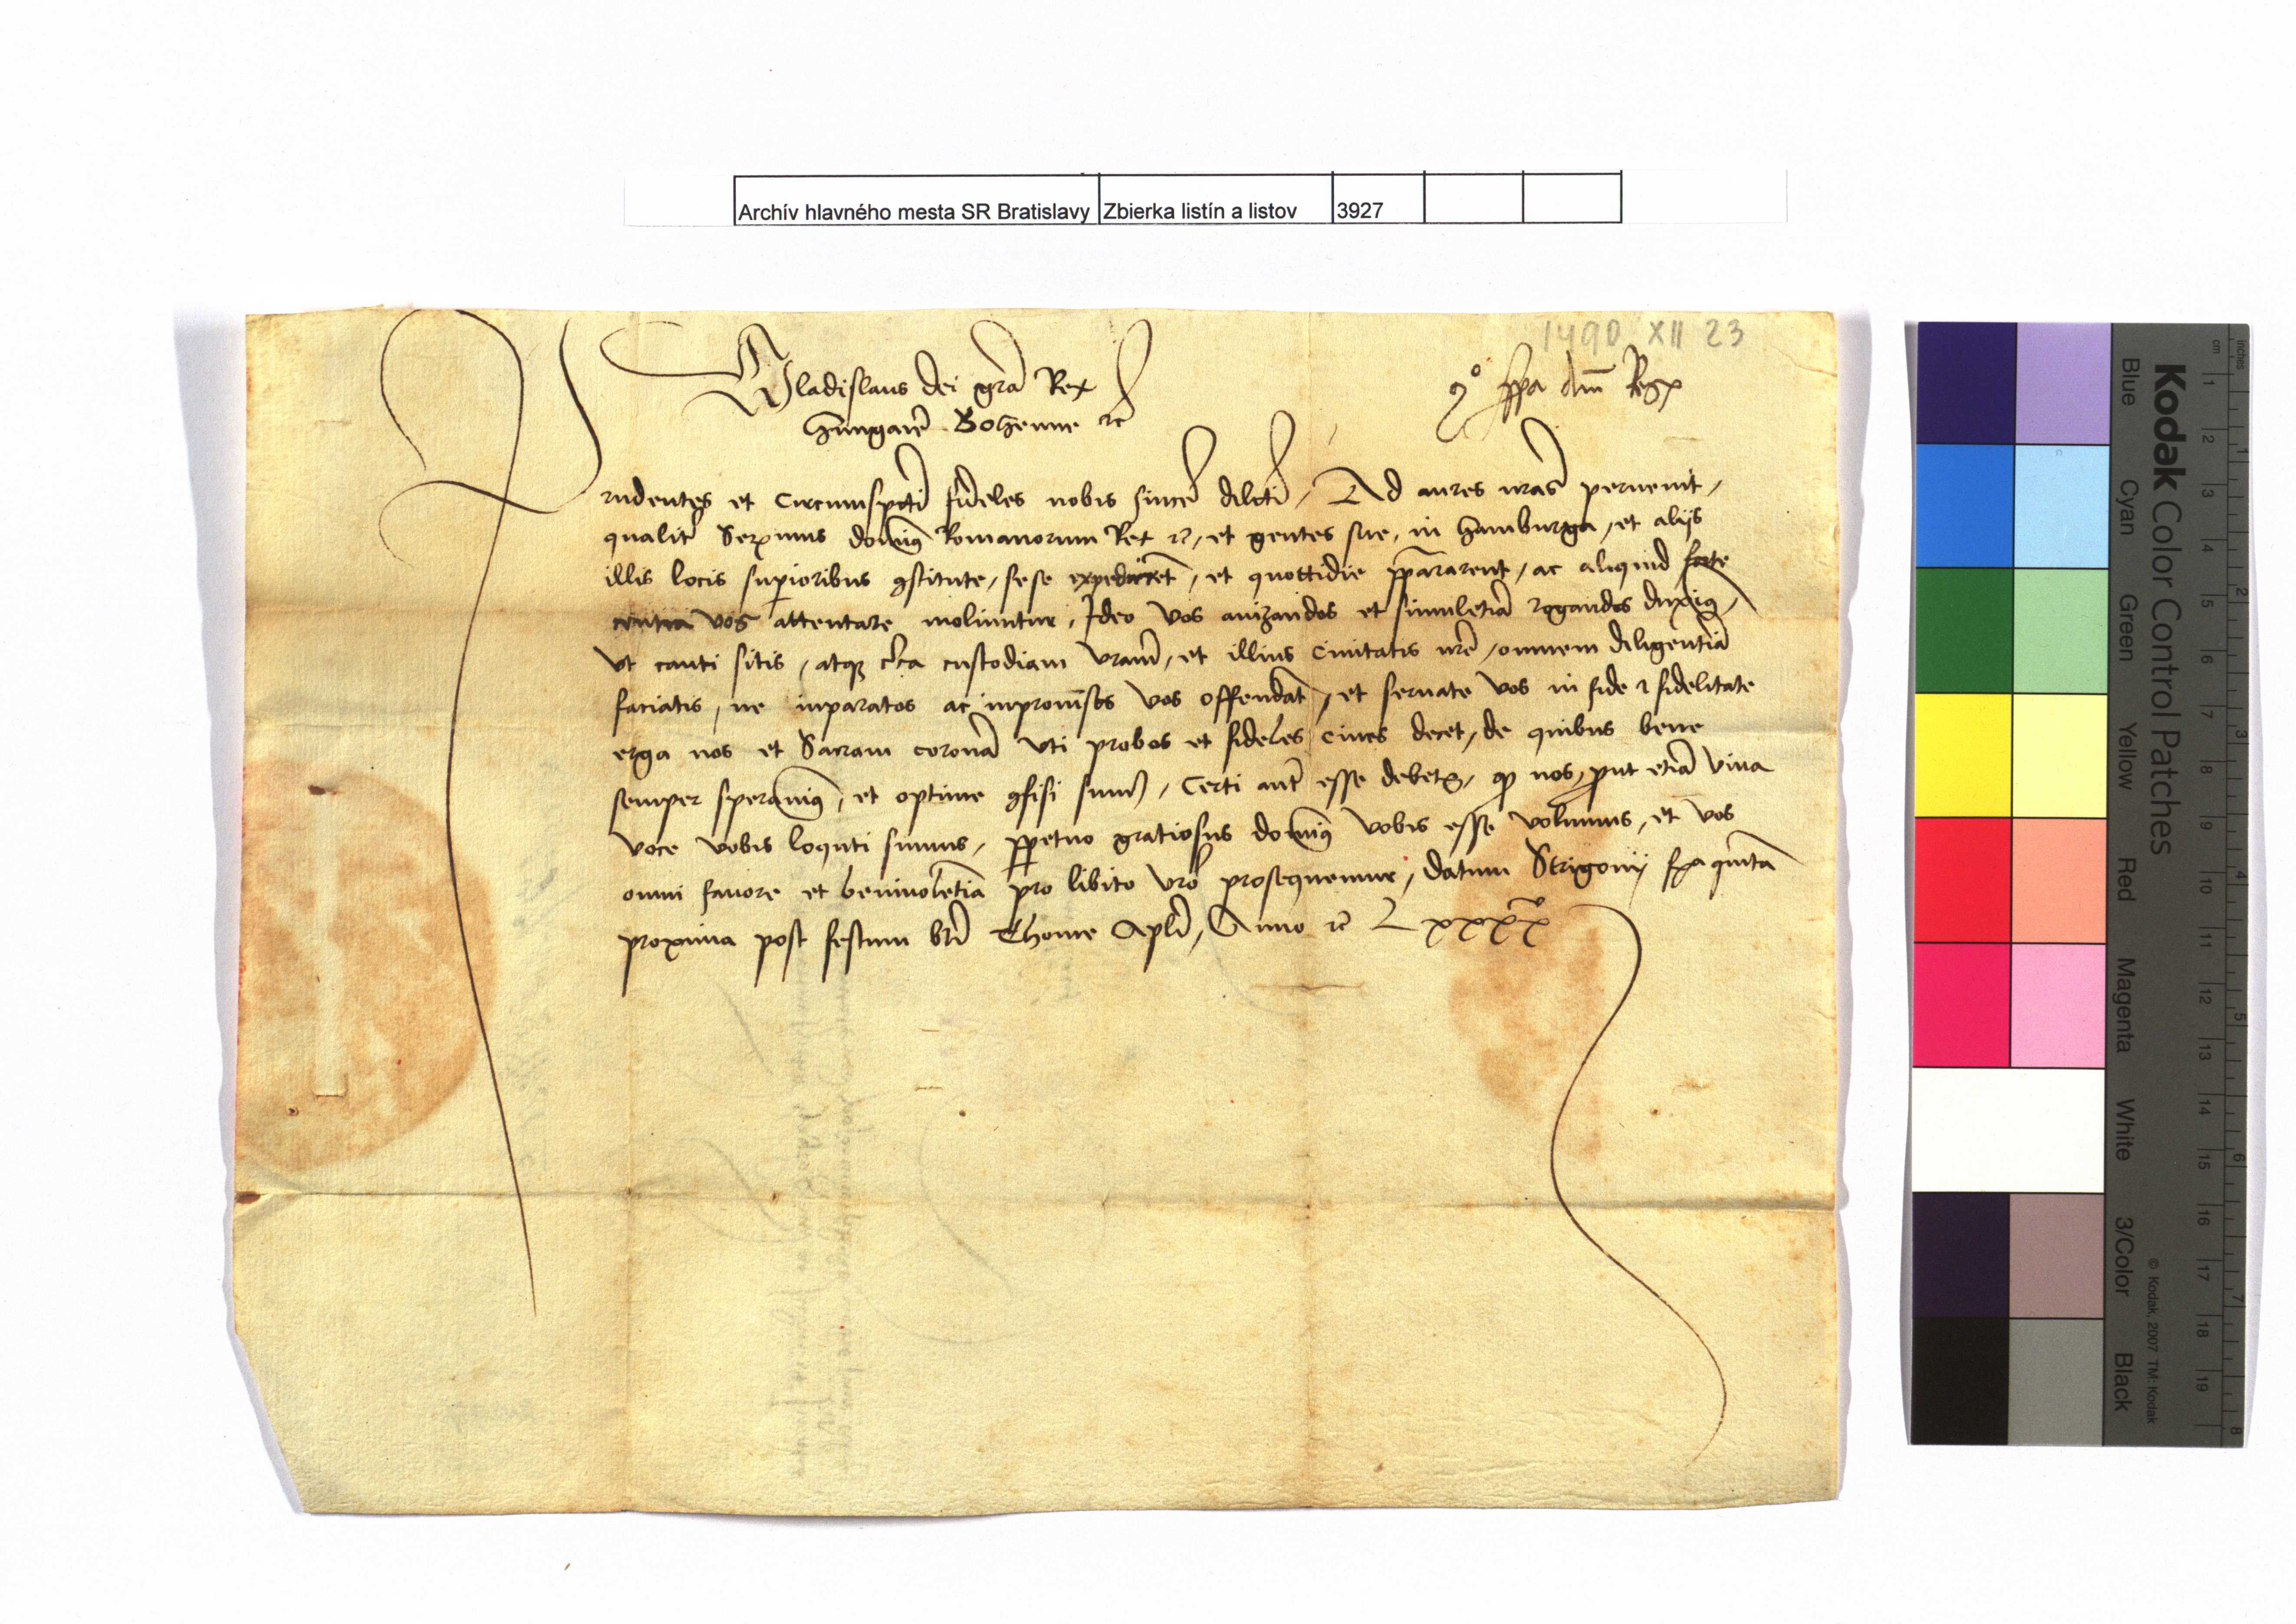 Archív hlavného mesta SR Bratislavy Zbierka listín a listov 3927
1490 XII 23
Wladislaus dei gra͞ Rex
Hungarie Bohemie ꝛc͞
Cͦ ꝓpa dn͞i Regꝭ
Prudentes et Circumspecti fideles nobis sincere dilecti / Ad aures nr͞as peruenit /
qualiter Serenimus dominꝰ Romanorum Rex ꝛc͞ / et gentes sue / in Hamburga / et alijs
illis locis supioribus ꝯstitute / sese expedirēt / et quottidie p͞pararent / ac aliquid forte
contra vos attentare moliuntur / Ideo vos auizandos et simuletiā rogandos duximꝰ /
vt cauti sitis / atqꝫ circa custodiam vr͞am / et illius Ciuitatis nr͞e / omnem diligentiā
faciatis / ne inparatos ac inprouisos vos offendāt / et seruate vos in fide ⁊ fidelitate
erga nos et Sacram coronā vti probos et fideles ciues decet / de quibus bene
semper speramꝰ / et optime ꝯfisi sumꝰ / Certi aut͞ esse debetꝭ / ꝙ nos / ꝓut etiā viua
voce vobis loquti sumus / ꝑpetuo gratiosus dominꝰ vobis esse volumus / et vos
omni fauore et beniuolētia pro libito vr͞o prosequemur / datum Strigonij fꝝa quintā
proxima post festum bt͞i Thome Apl͞i / Anno ꝛc͞ Lxxxxͦ
Kodak Color Control Patches
Blue Cyan Green Yellow Red Magenta White 3/Color Black
© Kodak, 2007 TM: Kodak
inches 1 2 3 4 5 6 7 8
cm 1 2 3 4 5 6 7 8 9 10 11 12 13 14 15 16 17 18 19